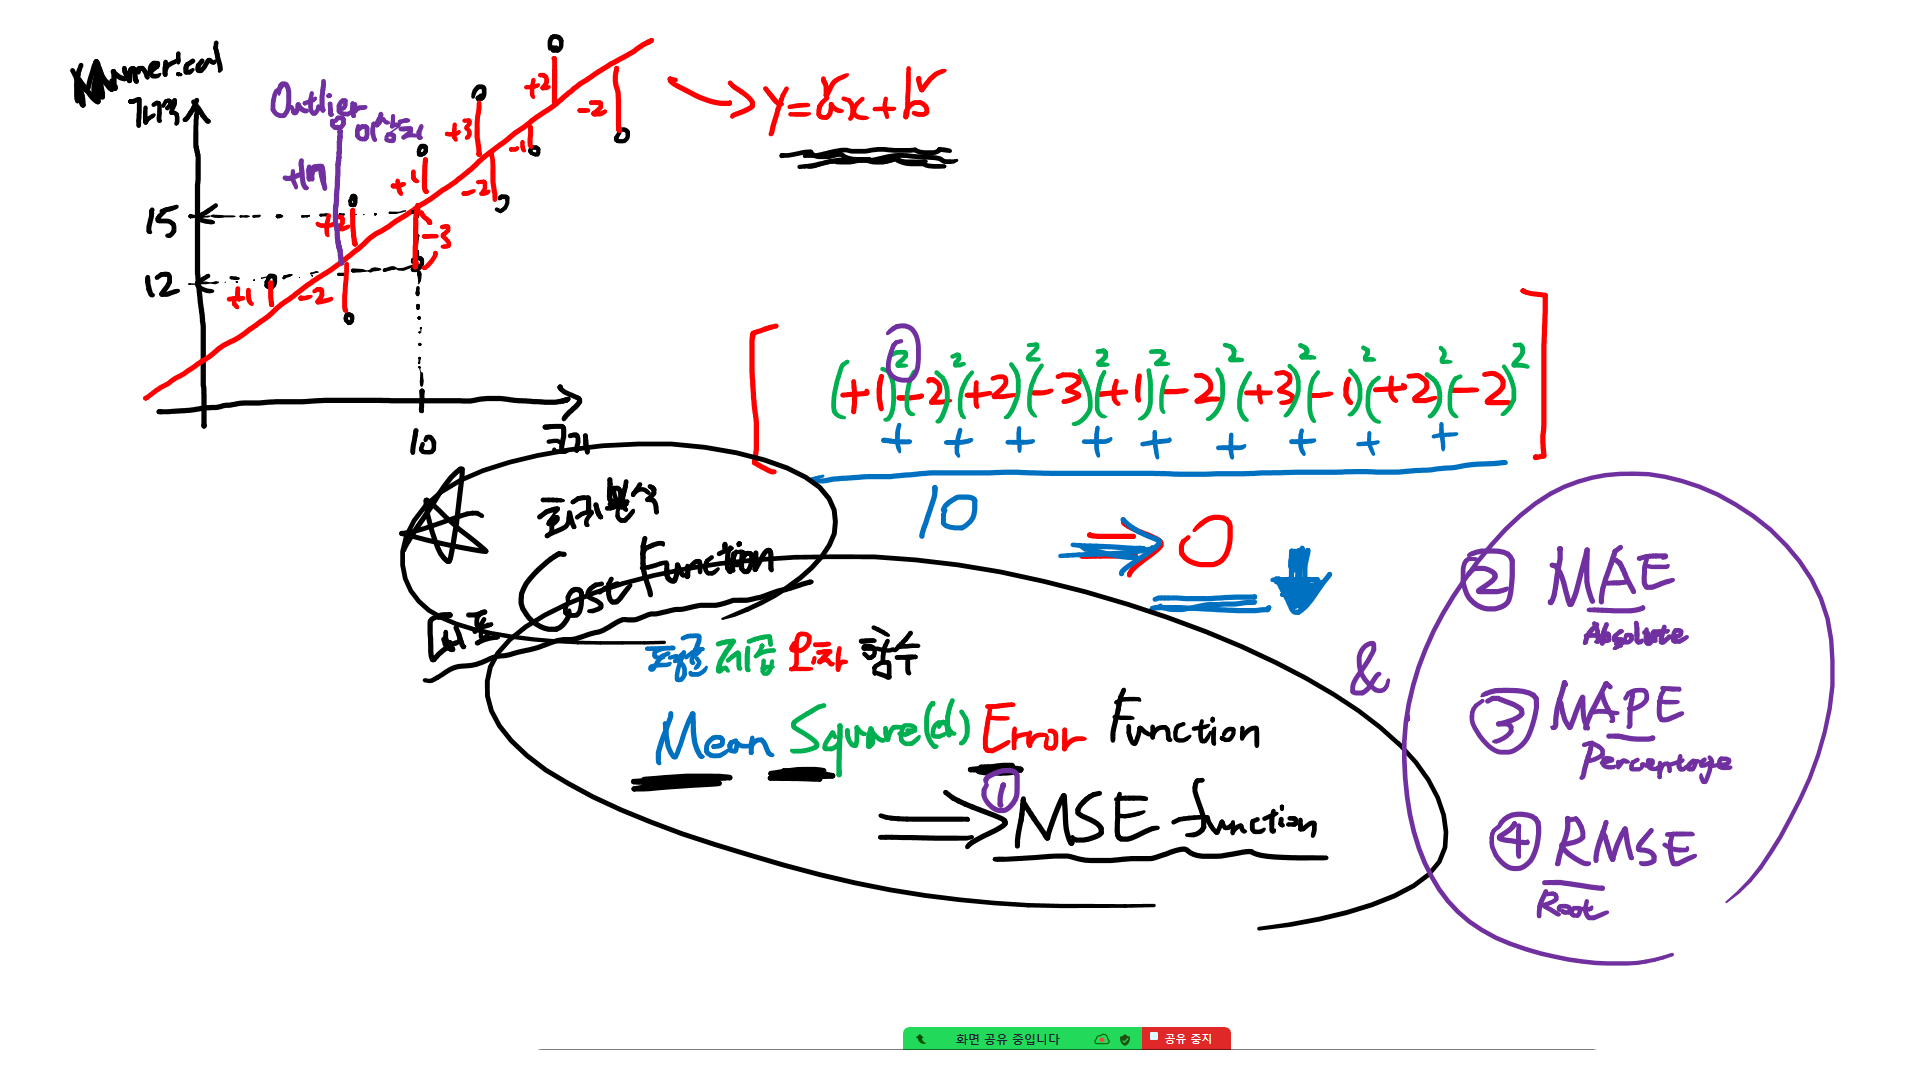 Numerical
가격
Outlier
이상치
+17
15
12
10
크기
+1
-2
+2
-3
+1
-2
+3
-1
+2
-2
y=ax+b
[(+1)²(-2)²(+2)²(-3)²(+1)²(-2)²(+3)²(-1)²(+2)²(-2)²]
+ + + + + + + + +
10
⇒ 0
회귀분석
Cost Function
비용
평균 제곱 오차 함수
Mean Square(d) Error Function
① ⇒ MSE function
&
② MAE
Absolute
③ MAPE
Percentage
④ RMSE
Root
화면 공유 중입니다
공유 중지